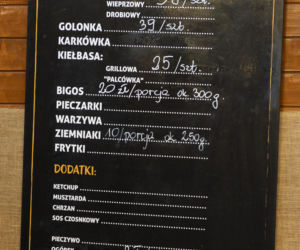 WIEPRZOWY /szt.
DROBIOWY
GOLONKA 39/szt.
KARKÓWKA
KIEŁBASA:
GRILLOWA 25/szt.
"PALCÓWKA"
BIGOS 20 zł/porcja ok 300g
PIECZARKI
WARZYWA
ZIEMNIAKI 10/porcja ok 250g
FRYTKI
DODATKI:
KETCHUP
MUSZTARDA
CHRZAN
SOS CZOSNKOWY
PIECZYWO
OGÓREK